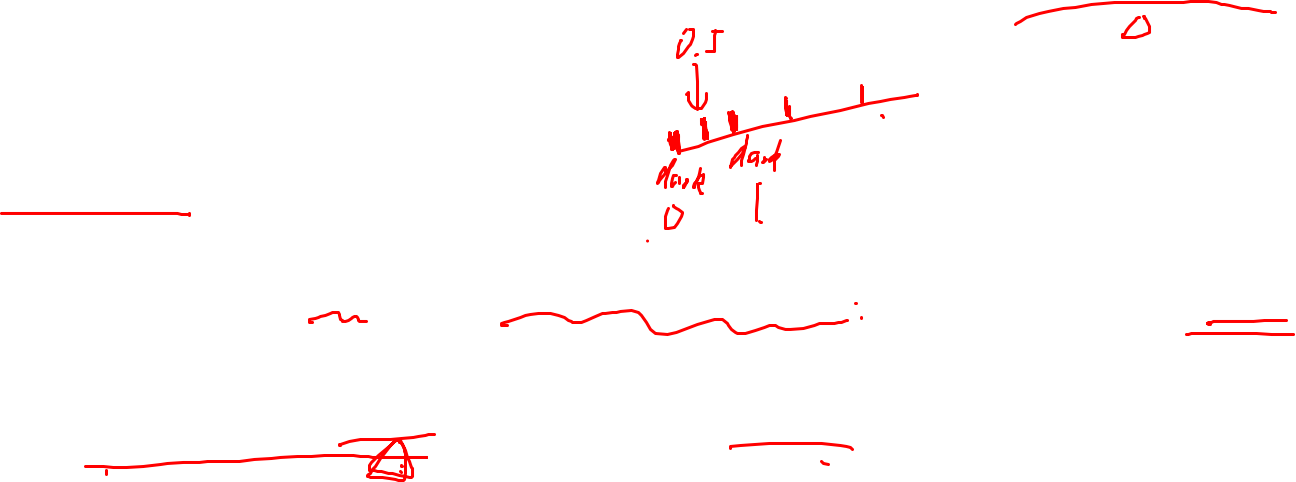 0
0.5
dark dark
0 1